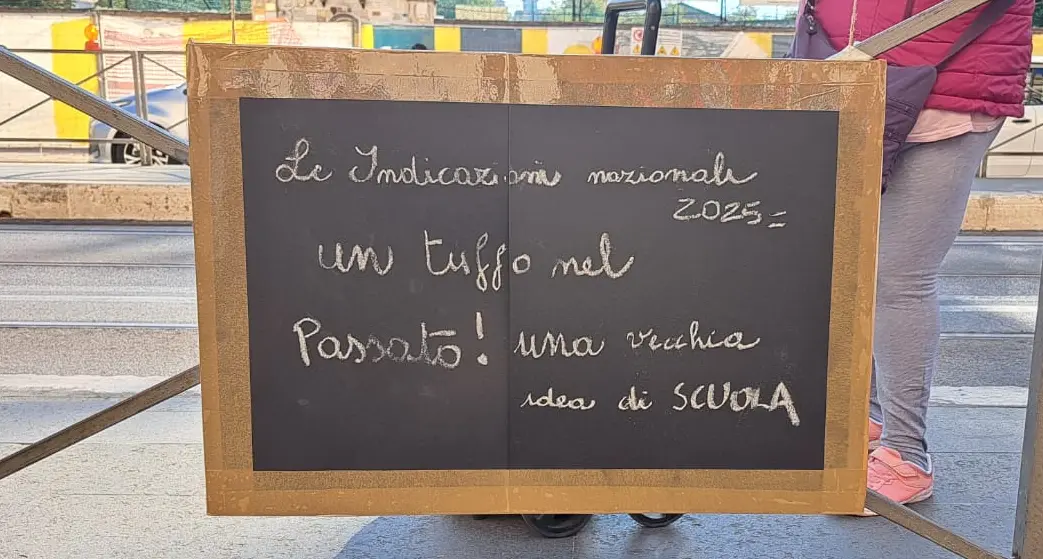 Le Indicazioni nazionali
2025=
un tuffo nel
Passato! una vecchia
idea di SCUOLA